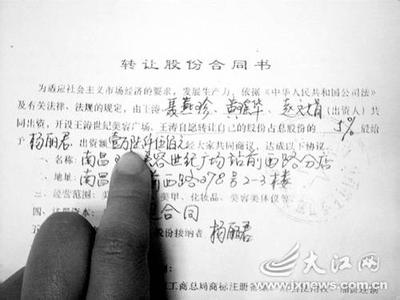 转让股份合同书
为适应社会主义市场经济的要求，发展生产力，依据《中华人民共和国公司法》
及有关法律、法规的规定，由王涛、聂燕珍、黄瑶华、赵文娟(出资人)共
同出资，开设王涛世纪美容广场。王涛自愿转让自己的股份占总股份的 5% 股给
予 杨丽君 出资额 壹万 仟伍佰 经大家共同商议，达成以下协议。
一、名称：南昌 美容世纪广场站前西路分店
二、地址：南昌 前西路278号2-3楼
三、经营范围：美 美甲、化妆品、美容美体仪等
四、 合同
股份接纳者 杨丽君
工商总局商标注册
大江网
www.jxnews.com.cn